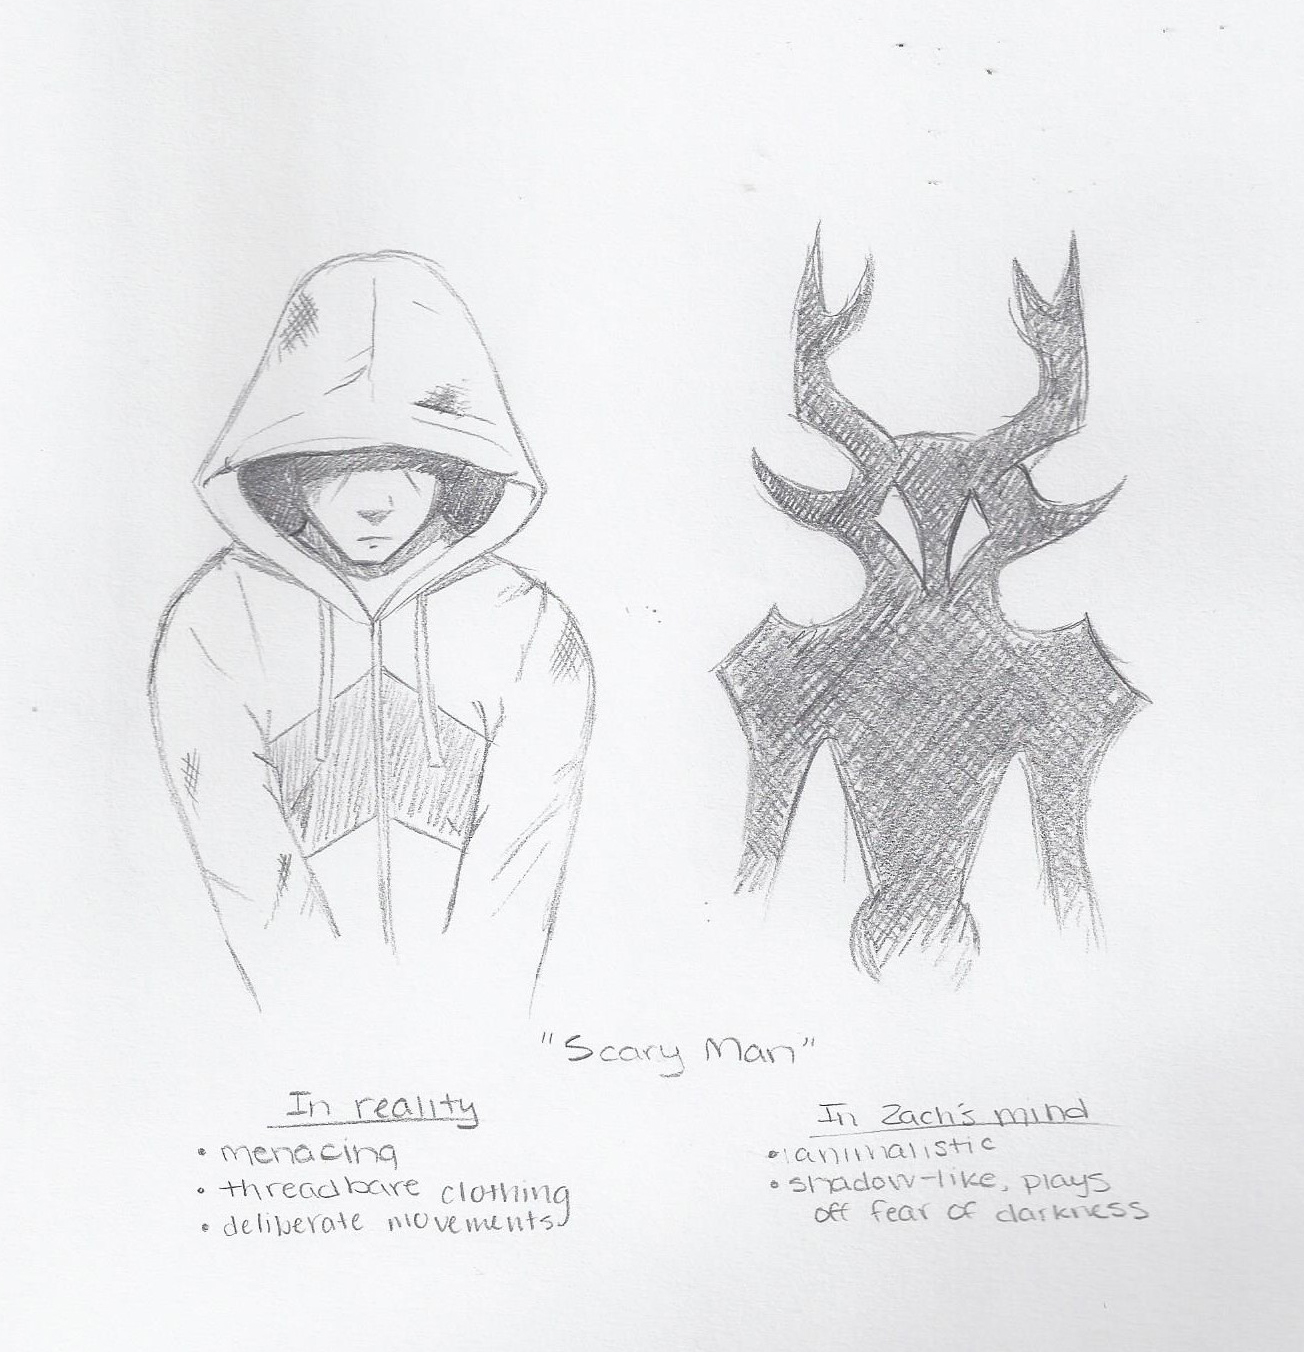 "Scary Man"
In reality
• menacing
• threadbare clothing
• deliberate movements
In Zach's mind
• animalistic
• shadow-like, plays
off fear of darkness